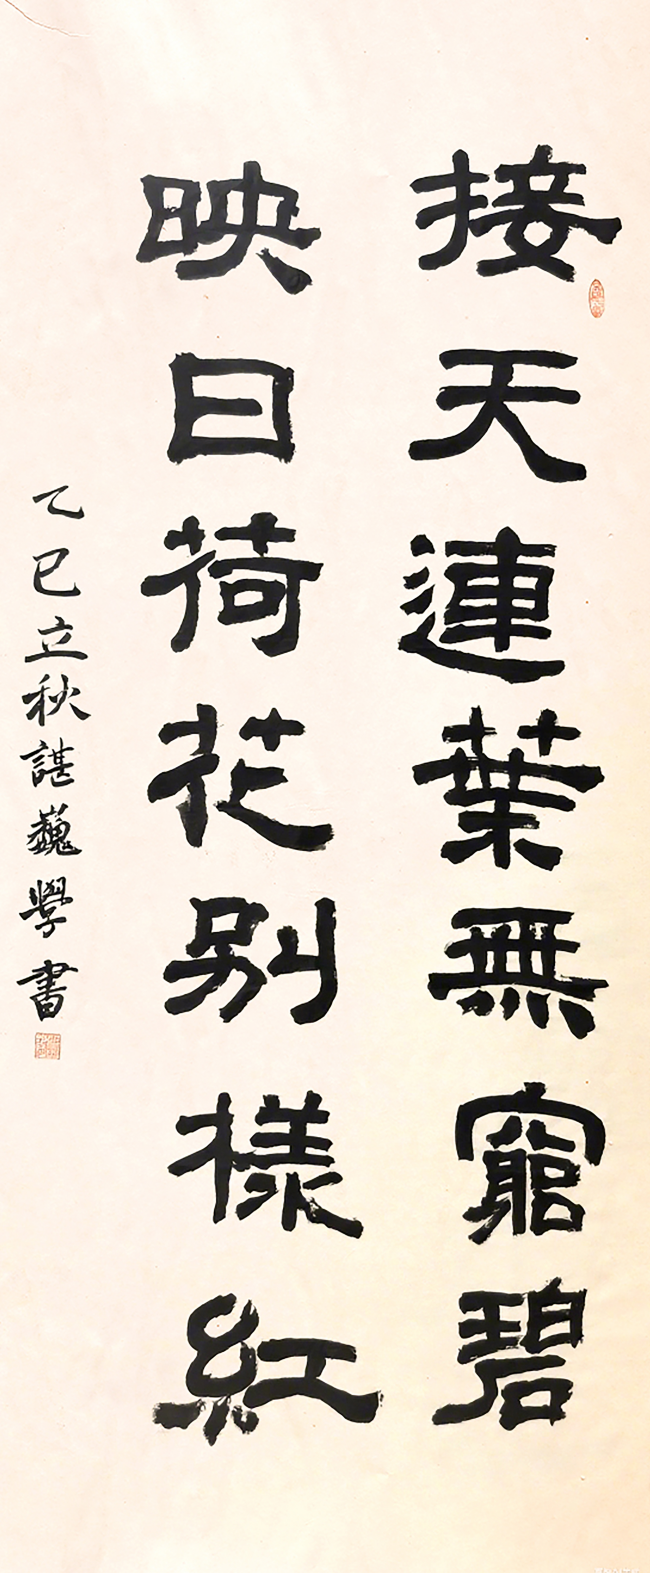 接天連葉無窮碧
映日荷花別樣紅
乙巳立秋諶巍學書